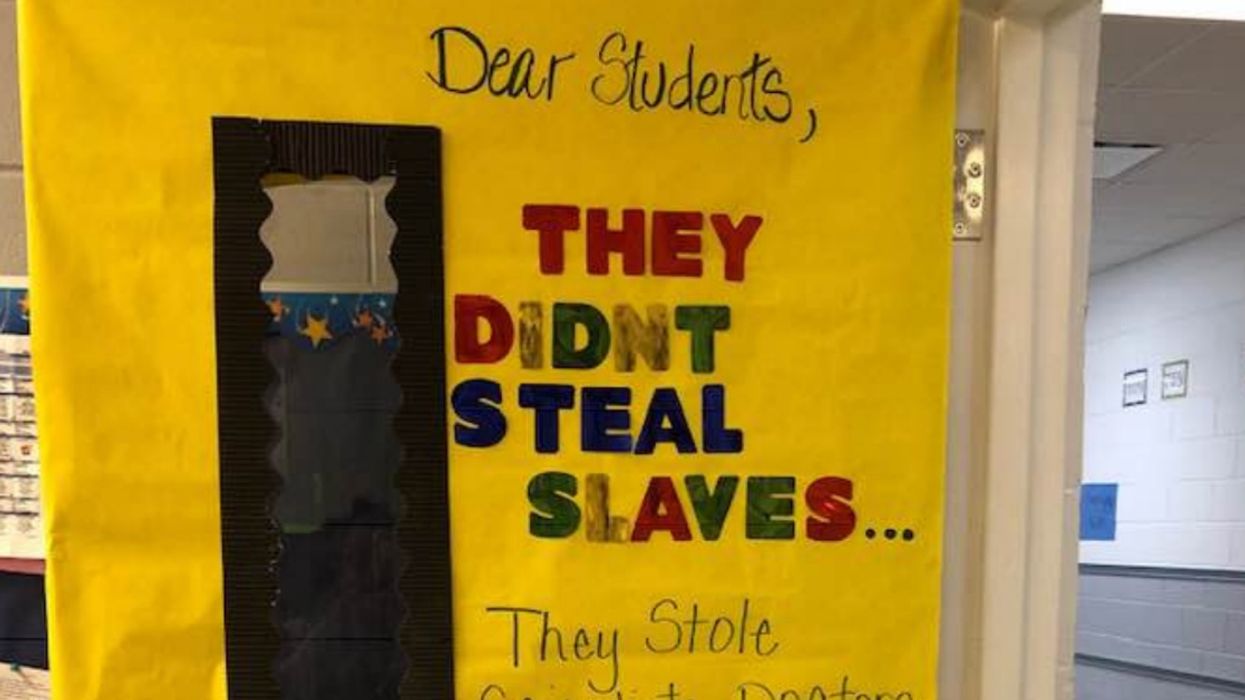 Dear Students,
THEY
DIDNT
STEAL
SLAVES...
They Stole
Scientists, Doctors,